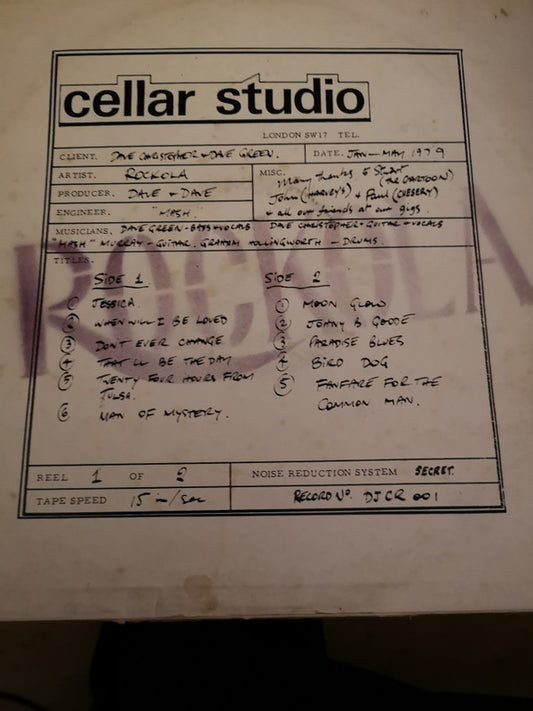 cellar studio
LONDON SW17 TEL.
CLIENT. DAVE CHRISTOPHER & DAVE GREEN. DATE. JAN - MAY 1979
ARTIST. ROCKOLA
PRODUCER. DAVE & DAVE
ENGINEER. "MASH"
MISC. Many thanks to Stuart
(THE CARTOON)
John (HARVEY'S) & Paul (CHEDDRY)
& all our friends at our gigs.
MUSICIANS. DAVE GREEN - BASS & VOCALS. DAVE CHRISTOPHER - GUITAR & VOCALS
"MASH" MURRAY - GUITAR. GRAHAM HOLLINGWORTH - DRUMS
TITLES.
ROCKOLA
SIDE 1
1 JESSICA.
2 WHEN WILL I BE LOVED
3 DON'T EVER CHANGE
4 THAT'LL BE THE DAY
5 TWENTY FOUR HOURS FROM
TULSA.
6 MAN OF MYSTERY.
SIDE 2
1 MOON GLOW
2 JOHNY B. GOODE
3 PARADISE BLUES
4 BIRD DOG
5 FANFARE FOR THE
COMMON MAN.
REEL 1 OF 2 NOISE REDUCTION SYSTEM SECRET.
TAPE SPEED 15 in/sec RECORD No. DJCR 001